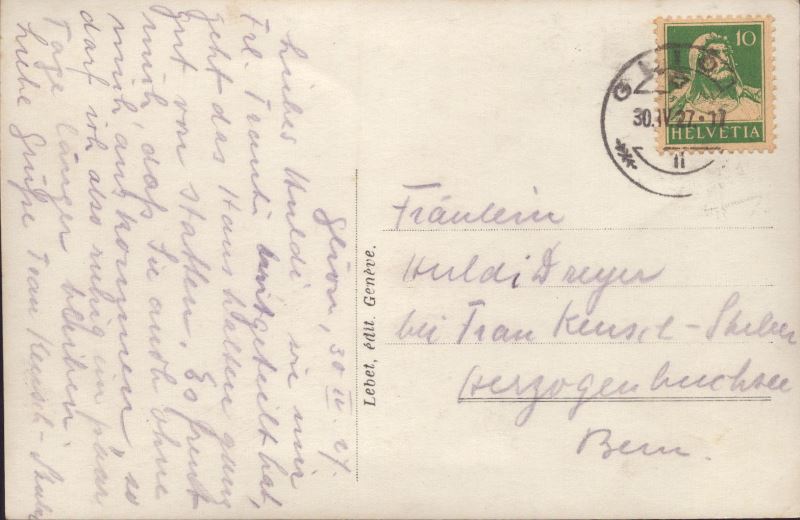 Glion, 30 IV 27.
Liebes Huldi, wie mir
Frl. Trauti mitgeteilt hat,
geht das Haushalten ganz
gut von statten. Es freut
mich, dass Sie auch ohne
mich auskommen, so
darf ich also ruhig ein paar
Tage länger bleiben.
Liebe Grüsse Frau Keusch-
Lebet, édit. Genève.
10
HELVETIA
GLION
30.IV.27·17
II
Fräulein
Huldi Dreyer
bei Frau Keusch-
Herzogenbuchsee
Bern.